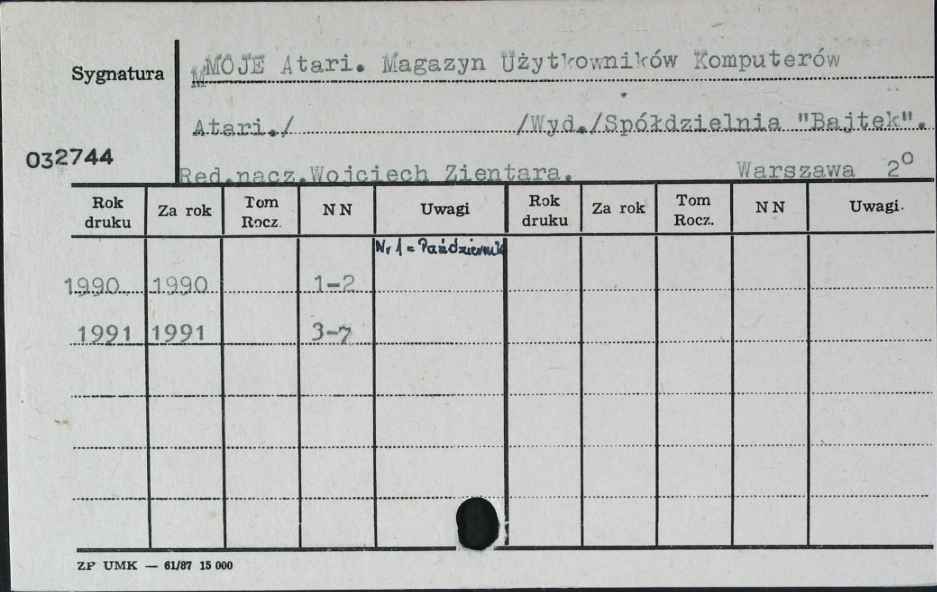 Sygnatura
MMOJE Atari. Magazyn Użytkowników Komputerów
Atari./ /Wyd./Spółdzielnia "Bajtek".
032744
Red.nacz.Wojciech Zientara. Warszawa 2°
Rok druku Za rok Tom Rocz. NN Uwagi Rok druku Za rok Tom Rocz. NN Uwagi.
Nr 1 = Październik
1990 1990 1-2
1991 1991 3-7
ZP UMK — 61/87 15 000